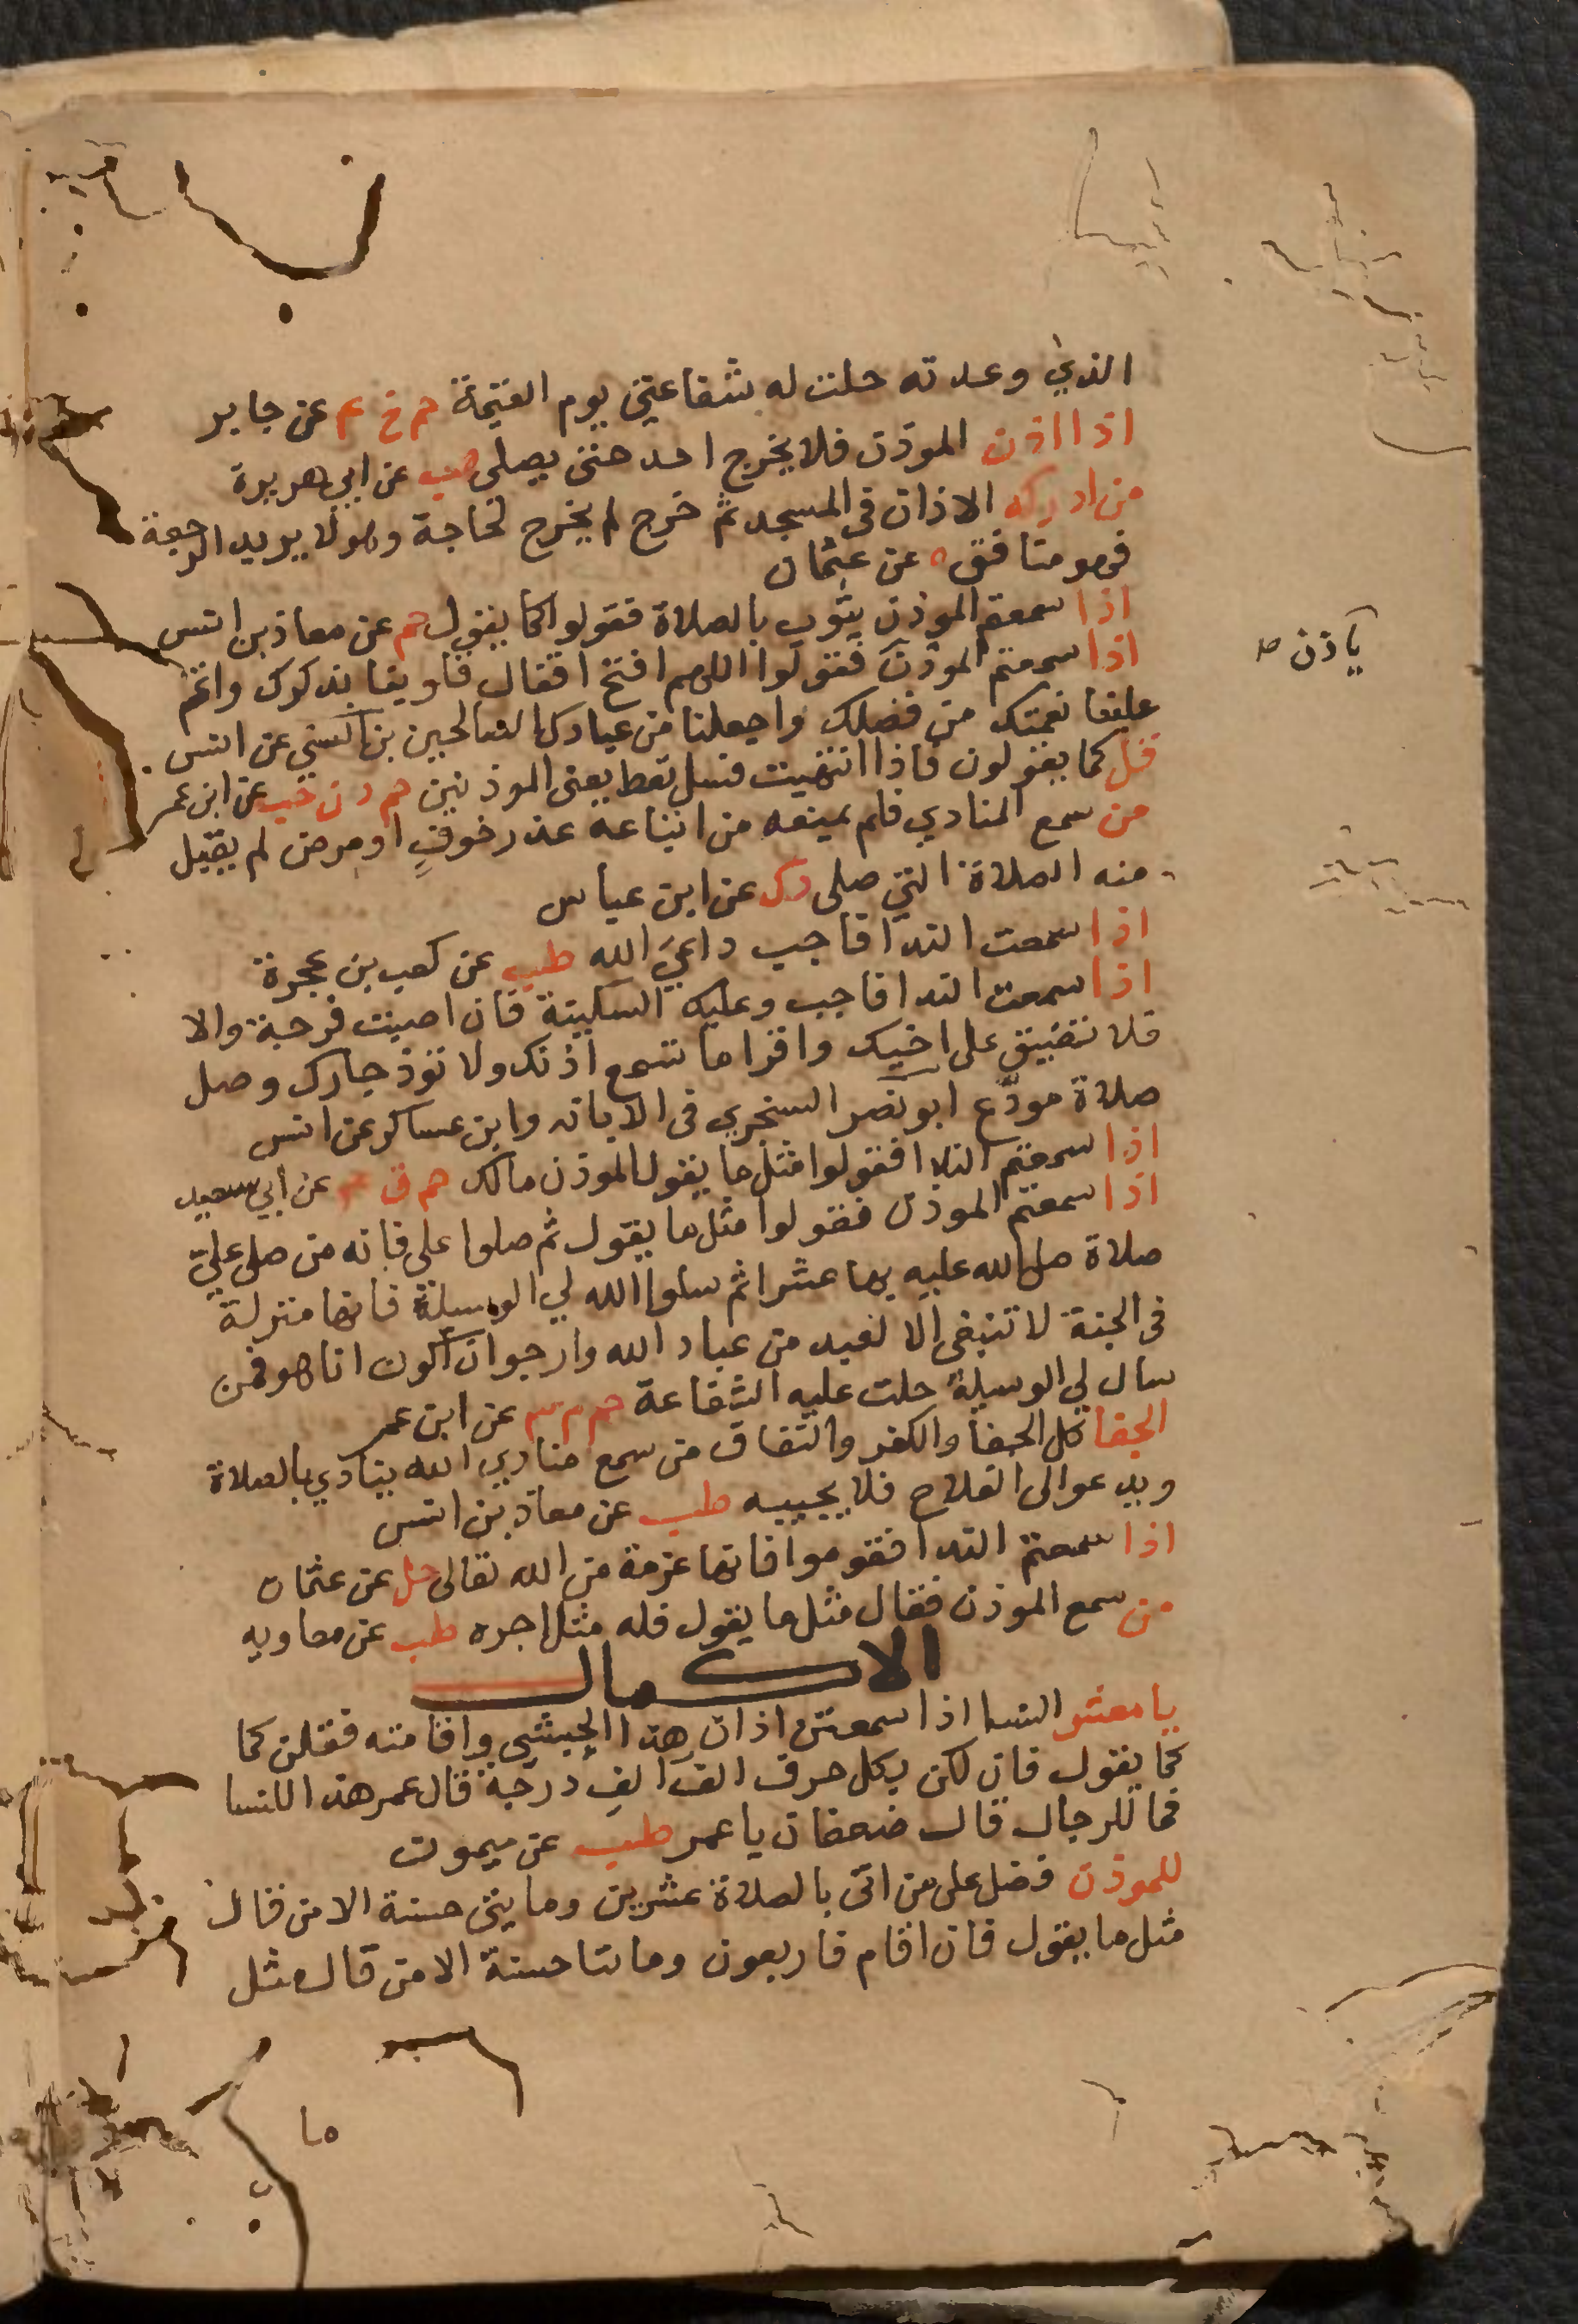 الذي وعدته حلت له شفاعتي يوم القيمة حم خ عم عن جابر
اذا اذن الموذن فلا يخرج احد حتى يصلى هب عن ابي هريرة
من ادركه الاذان فى المسجد ثم خرج لم يخرج لحاجة وهو لا يريد الرجعة
فهو منافق ه عن عثمان
اذا سمعتم الموذن يثوب بالصلاة فقولوا كما يقول حم عن معاذ بن انس
ياذن ط
اذا سمعتم الموذن فقولوا اللهم افتح اقفال قلوبنا بذكرك واتم
علينا نعمتك من فضلك واجعلنا من عبادك الصالحين بن السني عن انس
قل كما يقولون فاذا انتهيت فسل تعط يعنى الموذنين حم د ن حب عن ابن عمر
من سمع المنادي فلم يمنعه من اتباعه عذر خوفٍ او مرض لم يقبل
منه الصلاة التي صلى د ك عن ابن عباس
اذا سمعت الندا فاجب داعيَ الله طب عن كعب بن عجرة
اذا سمعت الندا فاجب وعليك السكينة فان اصبت فرجة والا
فلا تضيق على اخيك واقرا ما تسمع اذنك ولا توذ جارك وصل
صلاة مودّع ابو نصر السنجري فى الابانه وابن عساكر عن انس
اذا سمعتم الندا فقولوا مثل ما يقول الموذن مالك حم ق عم عن أبي سعيد
اذا سمعتم الموذن فقولوا مثل ما يقول ثم صلوا على فانه من صلى عليّ
صلاة صلى الله عليه بها عشرا ثم سلوا الله لي الوسيلة فانها منزلة
فى الجنة لا تنبغى الا لعبد من عباد الله وارجوا ان اكون انا هو فمن
سال لي الوسيلة حلت عليه الشفاعة حم م عن ابن عمر
الجفا كل الجفا والكفر والنفاق من سمع منادي الله ينادي بالصلاة
ويدعوا الى الفلاح فلا يجيبه طب عن معاذ بن انس
اذا سمعتم الندا فقوموا فانها عزمة من الله تعالى حل عن عثمان
من سمع الموذن فقال مثل ما يقول فله مثل اجره طب عن معاويه
الاكمال
يا معشر النسا اذا سمعتن اذان هذا الحبشي واقامته فقلن كما
كما يقول فان لكن بكل حرف الفَ الفِ درجة قال عمر هذا للنسا
فما للرجال قال ضعفان يا عمر طب عن ميمون
للموذن فضل على من اتى بالصلاة عشرين ومايتى حسنة الا من قال
مثل ما يقول فان اقام فاربعون ومايتا حسنة الا من قال مثل
ما